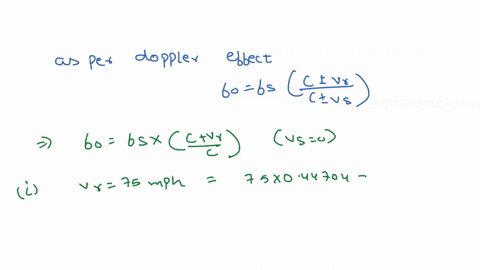 as per doppler effect
fo = fs ( (c ± vr) / (c ± vs) )
⇒ fo = fs × ( (c + vr) / c ) (vs = 0)
(i) vr = 75 mph = 75 × 0.44704 -